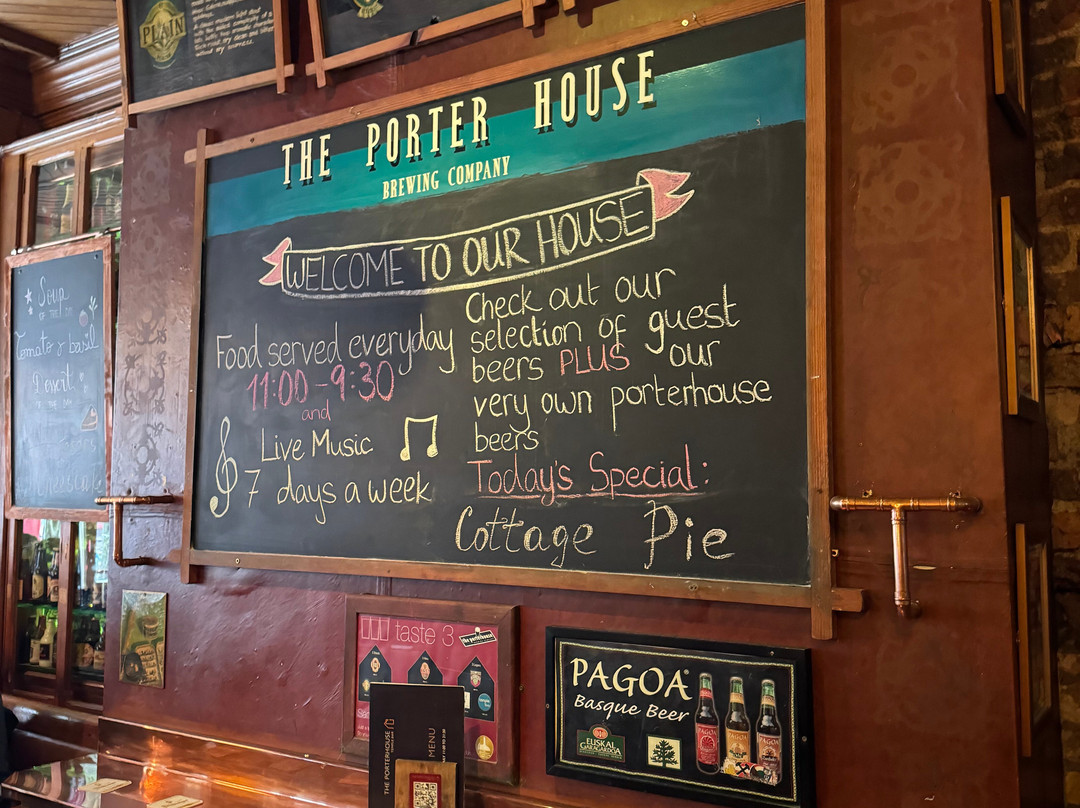 PLAIN
THE PORTER HOUSE
BREWING COMPANY
WELCOME TO OUR HOUSE
Food served everyday
11:00-9:30
and
Live Music
7 days a week
Check out our
selection of guest
beers PLUS our
very own porterhouse
beers
Today's Special:
Cottage Pie
Soup
OF THE DAY
Tomato & basil
Dessert
taste 3
the porterhouse
THE PORTERHOUSE
MENU
PAGOA
Basque Beer
EUSKAL
GARAGARDOA
PAGOA
PAGOA
PAGOA